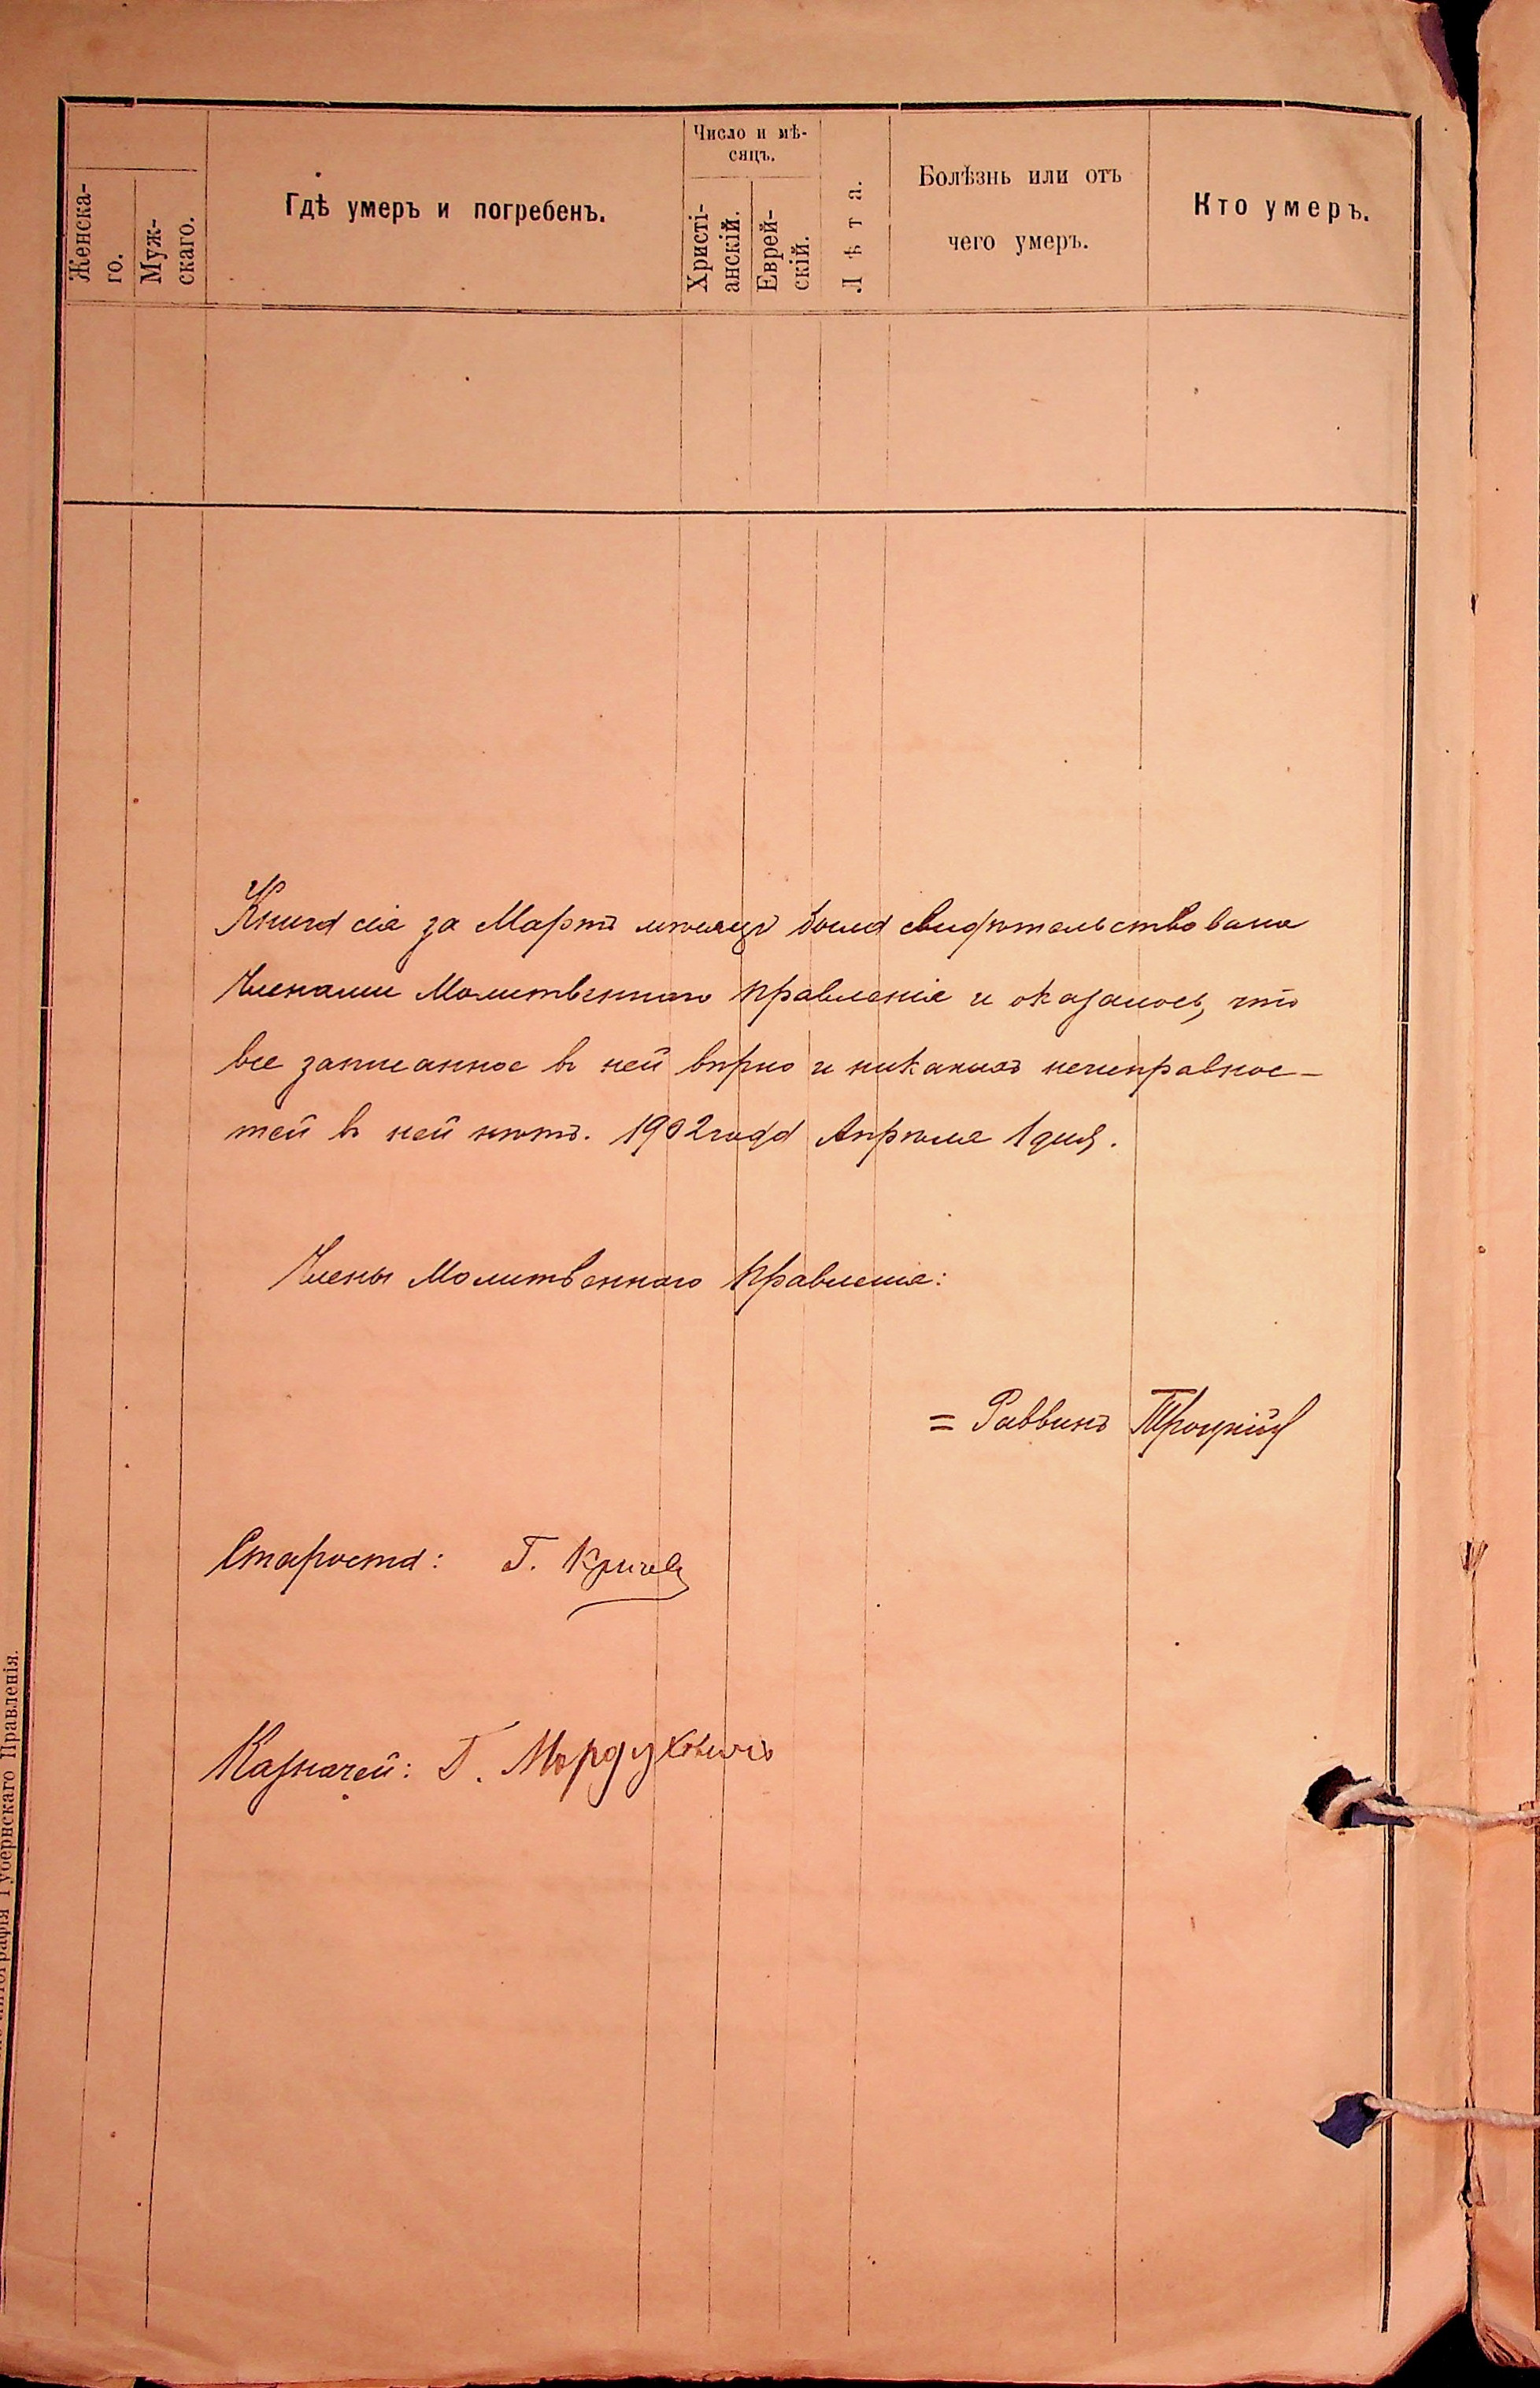 Женска-
го.
Муж-
скаго.
Гдѣ умеръ и погребенъ.
Число и мѣ-
сяцъ.
Христі-
анскій.
Еврей-
скій.
Лѣта.
Болѣзнь или отъ
чего умеръ.
Кто умеръ.
Книга сія за Мартъ мѣсяцъ была свидѣтельствована
Членами Молитвеннаго Правленія и оказалось, что
все записанное въ ней вѣрно и никакихъ неисправнос-
тей въ ней нѣтъ. 1902 года Апрѣля 1 дня.
Члены Молитвеннаго Правленія:
= Раввинъ Троцкій
Староста: Г.
Казначей: Г. Мордуховичъ
Губернскаго Правленія.